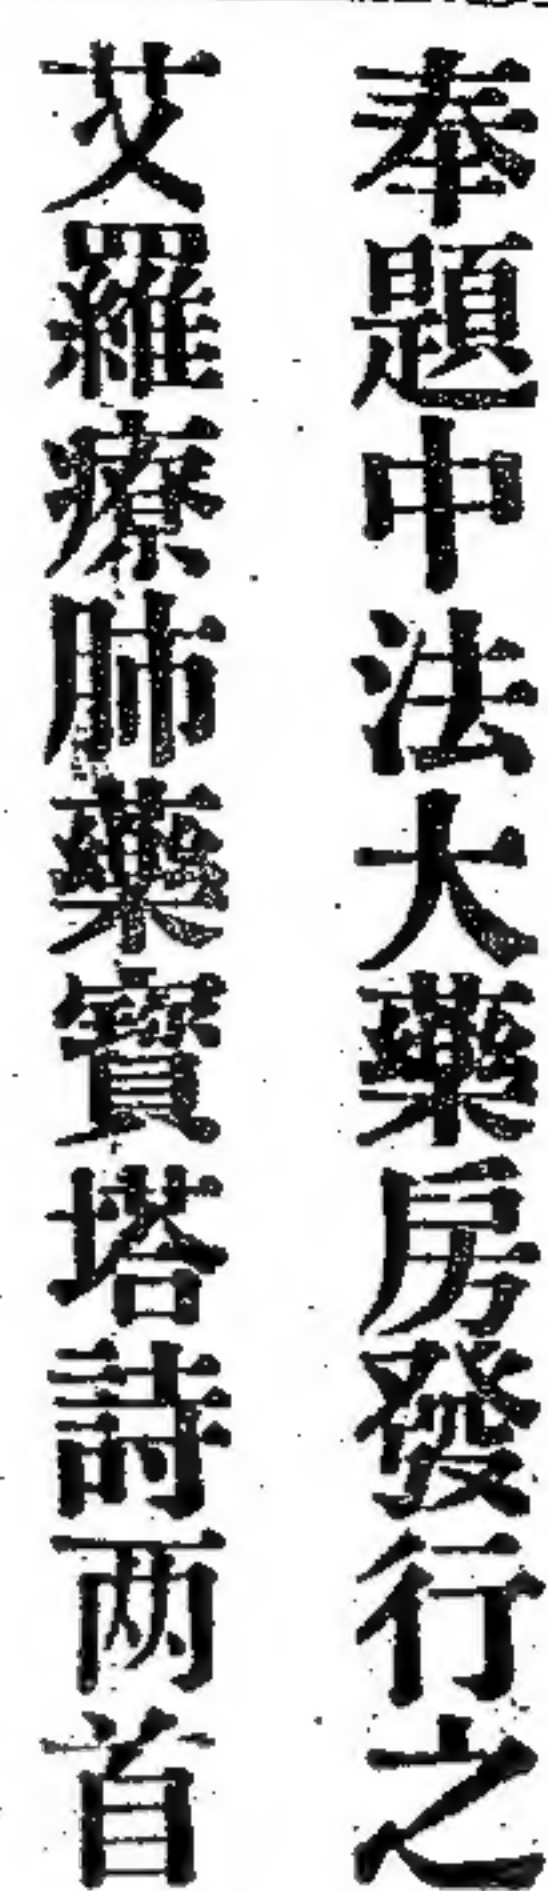 奉題中法大藥房發行之
艾羅療肺藥寶塔詩两首